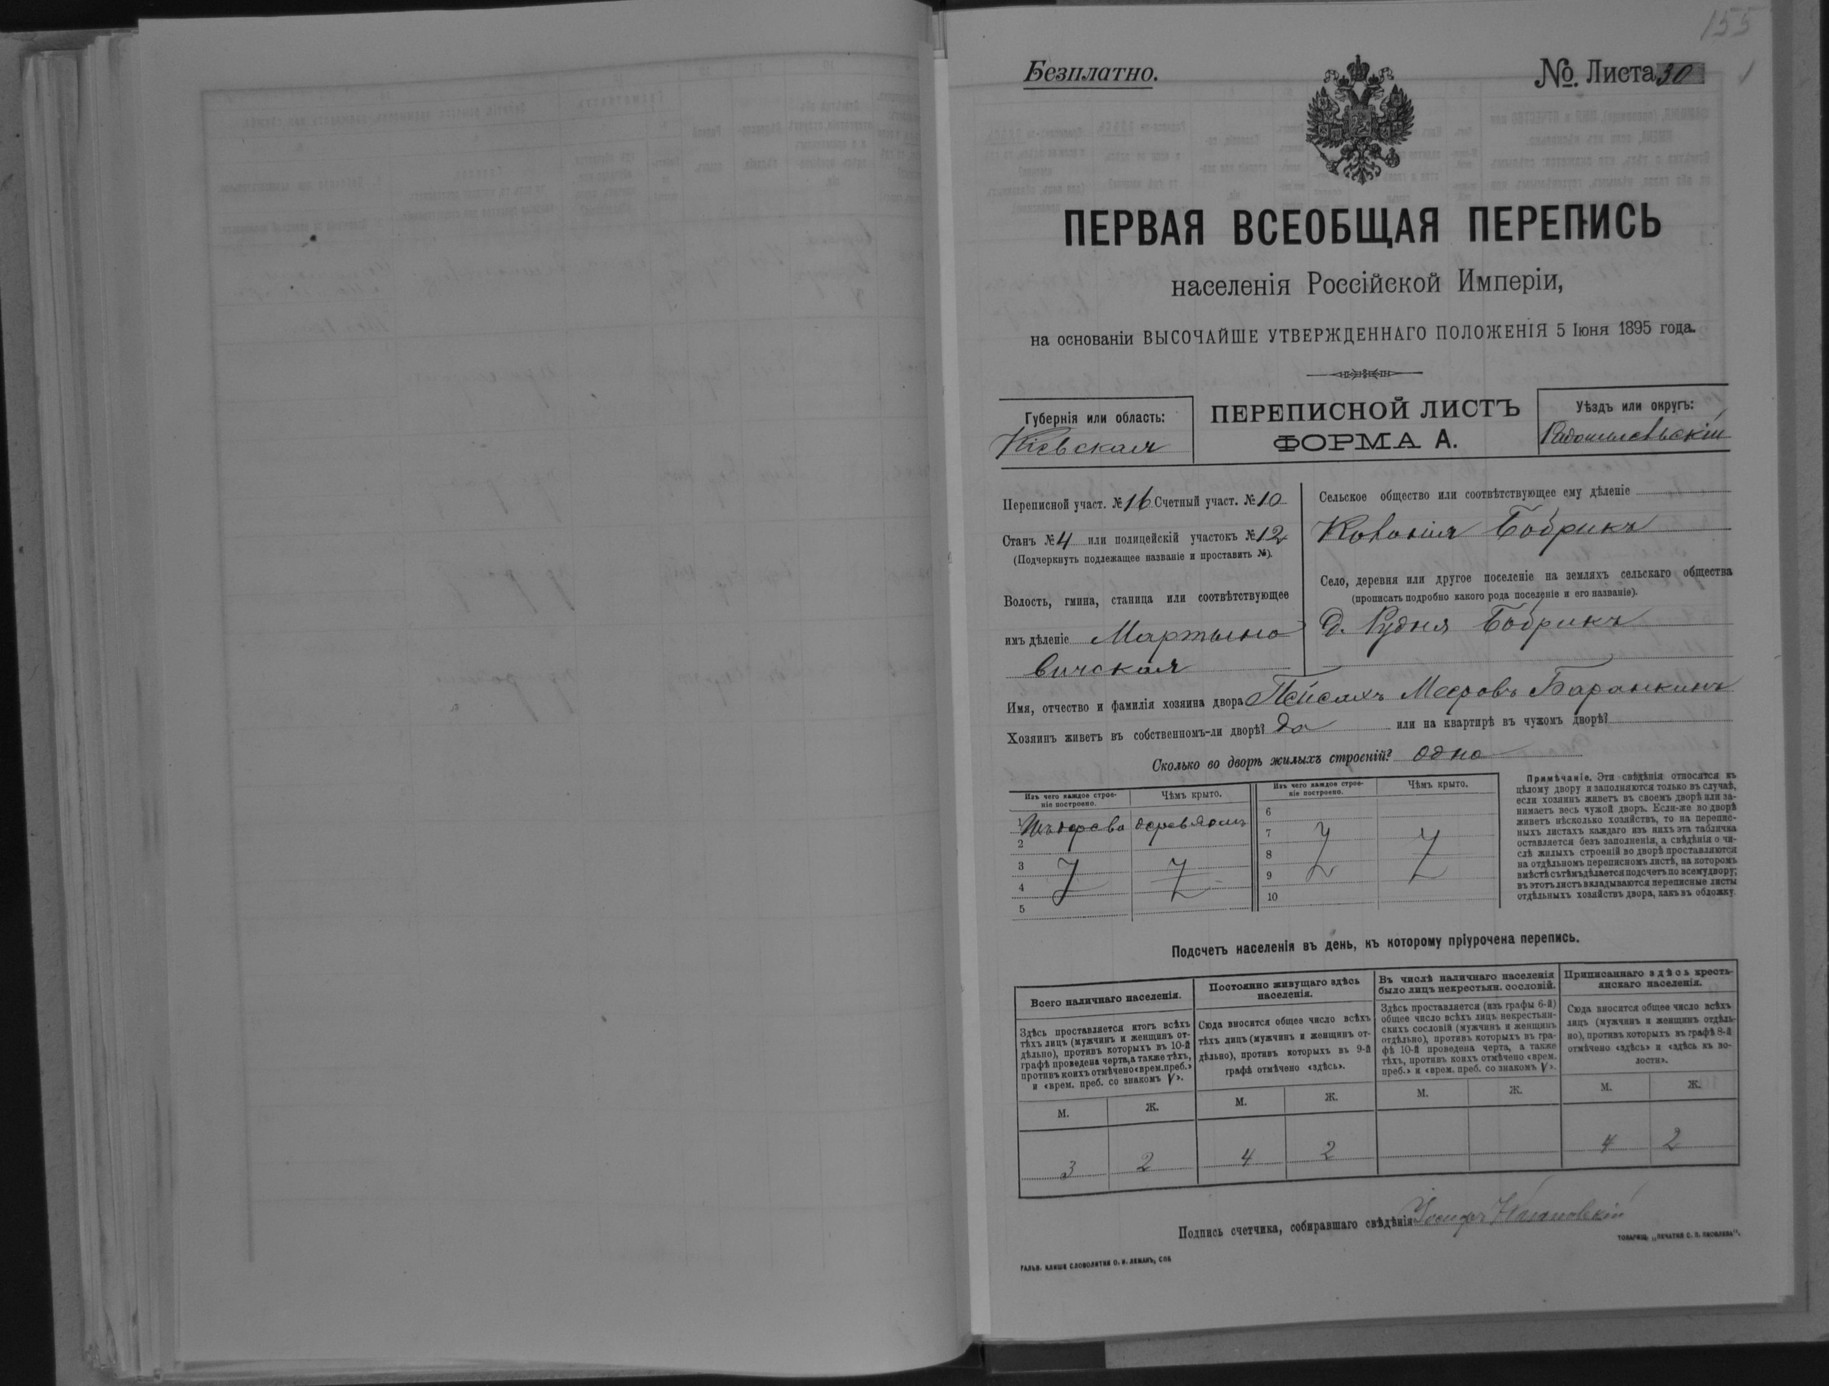 155
Безплатно.
№. Листа 30
ПЕРВАЯ ВСЕОБЩАЯ ПЕРЕПИСЬ
населенія Россійской Имперіи,
на основаніи ВЫСОЧАЙШЕ УТВЕРЖДЕННАГО ПОЛОЖЕНІЯ 5 Іюня 1895 года.
Губернія или область:
Кіевская
ПЕРЕПИСНОЙ ЛИСТЪ
ФОРМА А.
Уѣздъ или округъ:
Радомысльскій
Переписной участ. № 16 Счетный участ. № 10
Станъ № 4 или полицейскій участокъ № 12
(Подчеркнуть подлежащее названіе и проставить №).
Волость, гмина, станица или соотвѣтствующее
имъ дѣленіе Мартыно
вичская
Сельское общество или соотвѣтствующее ему дѣленіе
Колонія Бобрикъ
Село, деревня или другое поселеніе на земляхъ сельскаго общества
(прописать подробно какого рода поселеніе и его названіе).
д. Рудня Бобрикъ
Имя, отчество и фамилія хозяина двора Пейсахъ Мееровъ Баранкинъ
Хозяинъ живетъ въ собственномъ-ли дворѣ? да или на квартирѣ въ чужомъ дворѣ?
Сколько во дворѣ жилыхъ строеній? одно
Изъ чего каждое строе-
ніе построено.
Чѣмъ крыто.
Изъ чего каждое строе-
ніе построено.
Чѣмъ крыто.
1 Изъ дерева деревяомъ
2
3
4
5
6
7
8
9
10
Примѣчаніе. Эти свѣдѣнія относятся къ
цѣлому двору и заполняются только въ случаѣ,
если хозяинъ живетъ въ своемъ дворѣ или за-
нимаетъ весь чужой дворъ. Если-же во дворѣ
живетъ нѣсколько хозяйствъ, то на перепис-
ныхъ листахъ каждаго изъ нихъ эта табличка
оставляется безъ заполненія, а свѣдѣнія о чи-
слѣ жилыхъ строеній во дворѣ проставляются
на отдѣльномъ переписномъ листѣ, на которомъ
вмѣстѣ съ тѣмъ дѣлается подсчетъ по всему двору;
въ этотъ листъ вкладываются переписные листы
отдѣльныхъ хозяйствъ двора, какъ въ обложку.
Подсчетъ населенія въ день, къ которому пріурочена перепись.
Всего наличнаго населенія.
Здѣсь проставляется итогъ всѣхъ
тѣхъ лицъ (мужчинъ и женщинъ от-
дѣльно), противъ которыхъ въ 10-й
графѣ проведена черта, а также тѣхъ,
противъ коихъ отмѣчено «врем. преб.»
и «врем. преб. со знакомъ V».
М. Ж.
3 2
Постоянно живущаго здѣсь
населенія.
Сюда вносится общее число всѣхъ
тѣхъ лицъ (мужчинъ и женщинъ от-
дѣльно), противъ которыхъ въ 9-й
графѣ отмѣчено «здѣсь».
М. Ж.
4 2
Въ числѣ наличнаго населенія
было лицъ некрестьян. сословій.
Здѣсь проставляется (изъ графы 6-й)
общее число всѣхъ лицъ некрестьян-
скихъ сословій (мужчинъ и женщинъ
отдѣльно), противъ которыхъ въ гра-
фѣ 10-й проведена черта, а также
тѣхъ, противъ коихъ отмѣчено «врем.
преб.» и «врем. преб. со знакомъ V».
М. Ж.
Приписаннаго здѣсь кресть-
янскаго населенія.
Сюда вносится общее число всѣхъ
лицъ (мужчинъ и женщинъ отдѣль-
но), противъ которыхъ въ графѣ 8-й
отмѣчено «здѣсь» и «здѣсь въ во-
лости».
М. Ж.
4 2
Подпись счетчика, собиравшаго свѣдѣнія Іосифъ
ГАЛЬВ. КЛИШЕ СЛОВОЛИТНИ О. И. ЛЕМАНЪ, СПБ
ТОВАРИЩ. „ПЕЧАТНЯ С. П. ЯКОВЛЕВА".